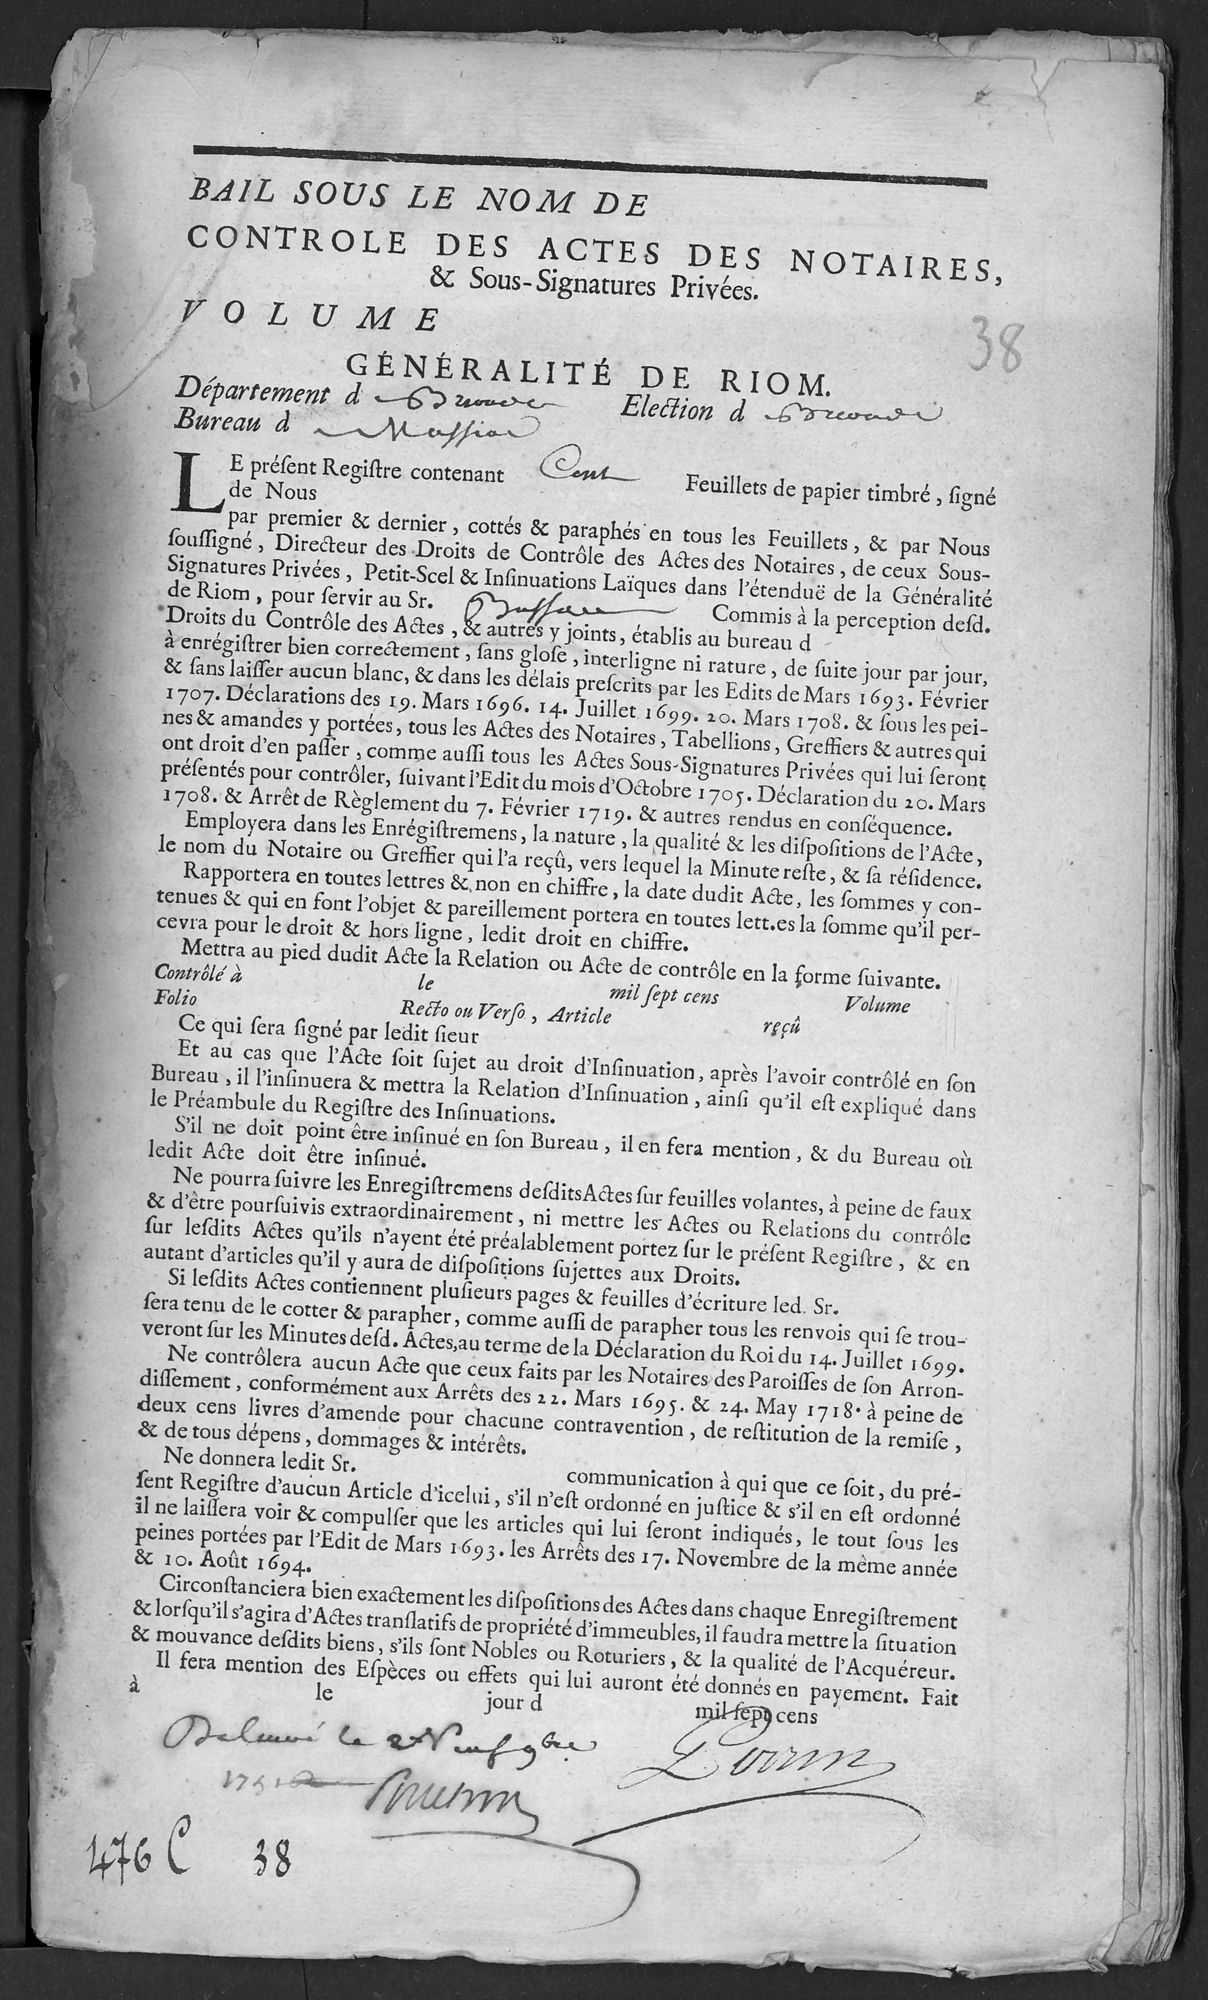 BAIL SOUS LE NOM DE
CONTROLE DES ACTES DES NOTAIRES,
& Sous-Signatures Privées.
VOLUME
38
GÉNÉRALITÉ DE RIOM.
Département d Brioude Election d Brioude
Bureau d Massiac
LE préſent Regiſtre contenant Cent Feuillets de papier timbré, ſigné
de Nous
par premier & dernier, cottés & paraphés en tous les Feuillets, & par Nous
ſouſſigné, Directeur des Droits de Contrôle des Actes des Notaires, de ceux Sous-
Signatures Privées, Petit-Scel & Inſinuations Laïques dans l'étenduë de la Généralité
de Riom, pour ſervir au Sr. Commis à la perception deſd.
Droits du Contrôle des Actes, & autres y joints, établis au bureau d
à enrégiſtrer bien correctement, ſans gloſe, interligne ni rature, de ſuite jour par jour,
& ſans laiſſer aucun blanc, & dans les délais preſcrits par les Edits de Mars 1693. Février
1707. Déclarations des 19. Mars 1696. 14. Juillet 1699. 20. Mars 1708. & ſous les pei-
nes & amandes y portées, tous les Actes des Notaires, Tabellions, Greffiers & autres qui
ont droit d'en paſſer, comme auſſi tous les Actes Sous-Signatures Privées qui lui ſeront
préſentés pour contrôler, ſuivant l'Edit du mois d'Octobre 1705. Déclaration du 20. Mars
1708. & Arrêt de Règlement du 7. Février 1719. & autres rendus en conſéquence.
Employera dans les Enrégiſtremens, la nature, la qualité & les diſpoſitions de l'Acte,
le nom du Notaire ou Greffier qui l'a reçû, vers lequel la Minute reſte, & ſa réſidence.
Rapportera en toutes lettres & non en chiffre, la date dudit Acte, les ſommes y con-
tenues & qui en font l'objet & pareillement portera en toutes lett.es la ſomme qu'il per-
cevra pour le droit & hors ligne, ledit droit en chiffre.
Mettra au pied dudit Acte la Relation ou Acte de contrôle en la forme ſuivante.
Contrôlé à le mil ſept cens Volume
Folio Recto ou Verſo, Article reçû
Ce qui ſera ſigné par ledit ſieur
Et au cas que l'Acte ſoit ſujet au droit d'Inſinuation, après l'avoir contrôlé en ſon
Bureau, il l'inſinuera & mettra la Relation d'Inſinuation, ainſi qu'il eſt expliqué dans
le Préambule du Regiſtre des Inſinuations.
S'il ne doit point être inſinué en ſon Bureau, il en fera mention, & du Bureau où
ledit Acte doit être inſinué.
Ne pourra ſuivre les Enregiſtremens deſdits Actes ſur feuilles volantes, à peine de faux
& d'être pourſuivis extraordinairement, ni mettre les Actes ou Relations du contrôle
ſur leſdits Actes qu'ils n'ayent été préalablement portez ſur le préſent Regiſtre, & en
autant d'articles qu'il y aura de diſpoſitions ſujettes aux Droits.
Si leſdits Actes contiennent pluſieurs pages & feuilles d'écriture led. Sr.
ſera tenu de le cotter & parapher, comme auſſi de parapher tous les renvois qui ſe trou-
veront ſur les Minutes deſd. Actes, au terme de la Déclaration du Roi du 14. Juillet 1699.
Ne contrôlera aucun Acte que ceux faits par les Notaires des Paroiſſes de ſon Arron-
diſſement, conformément aux Arrêts des 22. Mars 1695. & 24. May 1718. à peine de
deux cens livres d'amende pour chacune contravention, de reſtitution de la remiſe,
& de tous dépens, dommages & intérêts.
Ne donnera ledit Sr. communication à qui que ce ſoit, du pré-
ſent Regiſtre d'aucun Article d'icelui, s'il n'eſt ordonné en juſtice & s'il en eſt ordonné
il ne laiſſera voir & compulſer que les articles qui lui ſeront indiqués, le tout ſous les
peines portées par l'Edit de Mars 1693. les Arrêts des 17. Novembre de la même année
& 10. Août 1694.
Circonſtanciera bien exactement les diſpoſitions des Actes dans chaque Enregiſtrement
& lorſqu'il s'agira d'Actes tranſlatifs de propriété d'immeubles, il faudra mettre la ſituation
& mouvance deſdits biens, s'ils ſont Nobles ou Roturiers, & la qualité de l'Acquéreur.
Il fera mention des Eſpèces ou effets qui lui auront été donnés en payement. Fait
à le jour d mil ſept cens
le 9bre
476 C 38